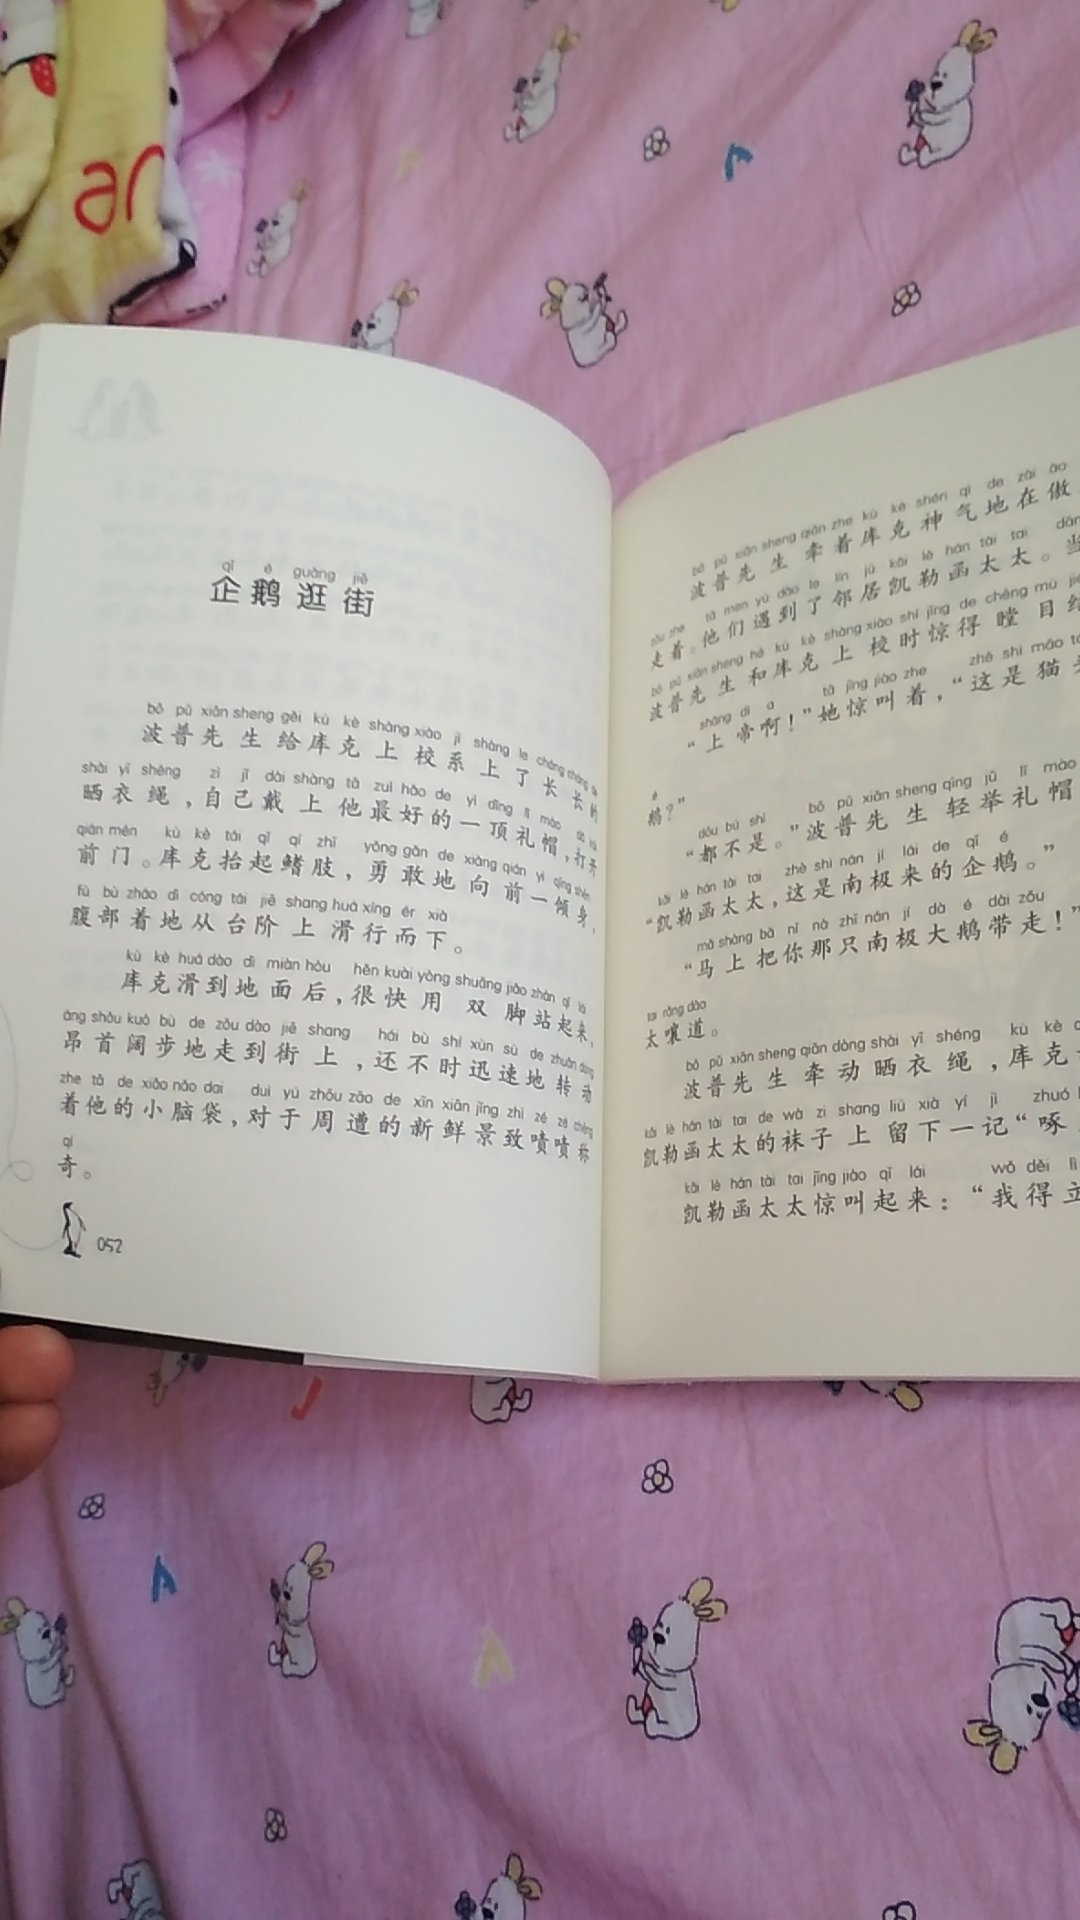 an
qǐ é guàng jiē
企鹅逛街
bō pǔ xiān sheng gěi kù kè shàng xiào jì shàng le cháng cháng de
波普先生给库克上校系上了长长的
shài yī shéng zì jǐ dài shàng tā zuì hǎo de yì dǐng lǐ mào dǎ kāi
晒衣绳，自己戴上他最好的一顶礼帽，打开
qián mén kù kè tái qǐ qí zhī yǒng gǎn de xiàng qián yì qīng shēn
前门。库克抬起鳍肢，勇敢地向前一倾身，
fù bù zháo dì cóng tái jiē shang huá xíng ér xià
腹部着地从台阶上滑行而下。
kù kè huá dào dì miàn hòu hěn kuài yòng shuāng jiǎo zhàn qǐ lái
库克滑到地面后，很快用双脚站起来，
áng shǒu kuò bù de zǒu dào jiē shang hái bù shí xùn sù de zhuàn dòng
昂首阔步地走到街上，还不时迅速地转动
zhe tā de xiǎo nǎo dai duì yú zhōu zāo de xīn xiān jǐng zhì zé zé chēng
着他的小脑袋，对于周遭的新鲜景致啧啧称
qí
奇。
052
bō pǔ xiān sheng qiān zhe kù kè shén qì de zài ào
波普先生牵着库克神气地在傲
zǒu zhe tā men yù dào le lín jū kǎi lè hán tài tai dāng
走着。他们遇到了邻居凯勒函太太。当
bō pǔ xiān sheng hé kù kè shàng xiào shí jīng de chēng mù jié
波普先生和库克上校时惊得瞠目结
shàng dì a tā jīng jiào zhe zhè shì māo tóu
“上帝啊！”她惊叫着，“这是猫头
é
鹅？”
dōu bú shì bō pǔ xiān sheng qīng jǔ lǐ mào
“都不是。”波普先生轻举礼帽
kǎi lè hán tài tai zhè shì nán jí lái de qǐ é
“凯勒函太太，这是南极来的企鹅。”
mǎ shàng bǎ nǐ nà zhī nán jí dà é dài zǒu
“马上把你那只南极大鹅带走！”
tai rǎng dào
太嚷道。
bō pǔ xiān sheng qiān dòng shài yī shéng kù kè
波普先生牵动晒衣绳，库克
kǎi lè hán tài tai de wà zi shang liú xià yí jì zhuó
凯勒函太太的袜子上留下一记“啄
kǎi lè hán tài tai jīng jiào qǐ lái wǒ děi lì
凯勒函太太惊叫起来：“我得立